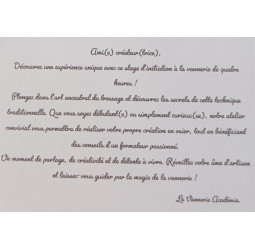 Ami(e) créateur(trice),
Découvrez une expérience unique avec ce stage d'initiation à la vannerie de quatre
heures !
Plongez dans l'art ancestral du tressage et découvrez les secrets de cette technique
traditionnelle. Que vous soyez débutant(e) ou simplement curieux(se), notre atelier
convivial vous permettra de réaliser votre propre création en osier, tout en bénéficiant
des conseils d'un formateur passionné.
Un moment de partage, de créativité et de détente à vivre. Réveillez votre âme d'artisan
et laissez-vous guider par la magie de la vannerie !
La Vannerie Académie.